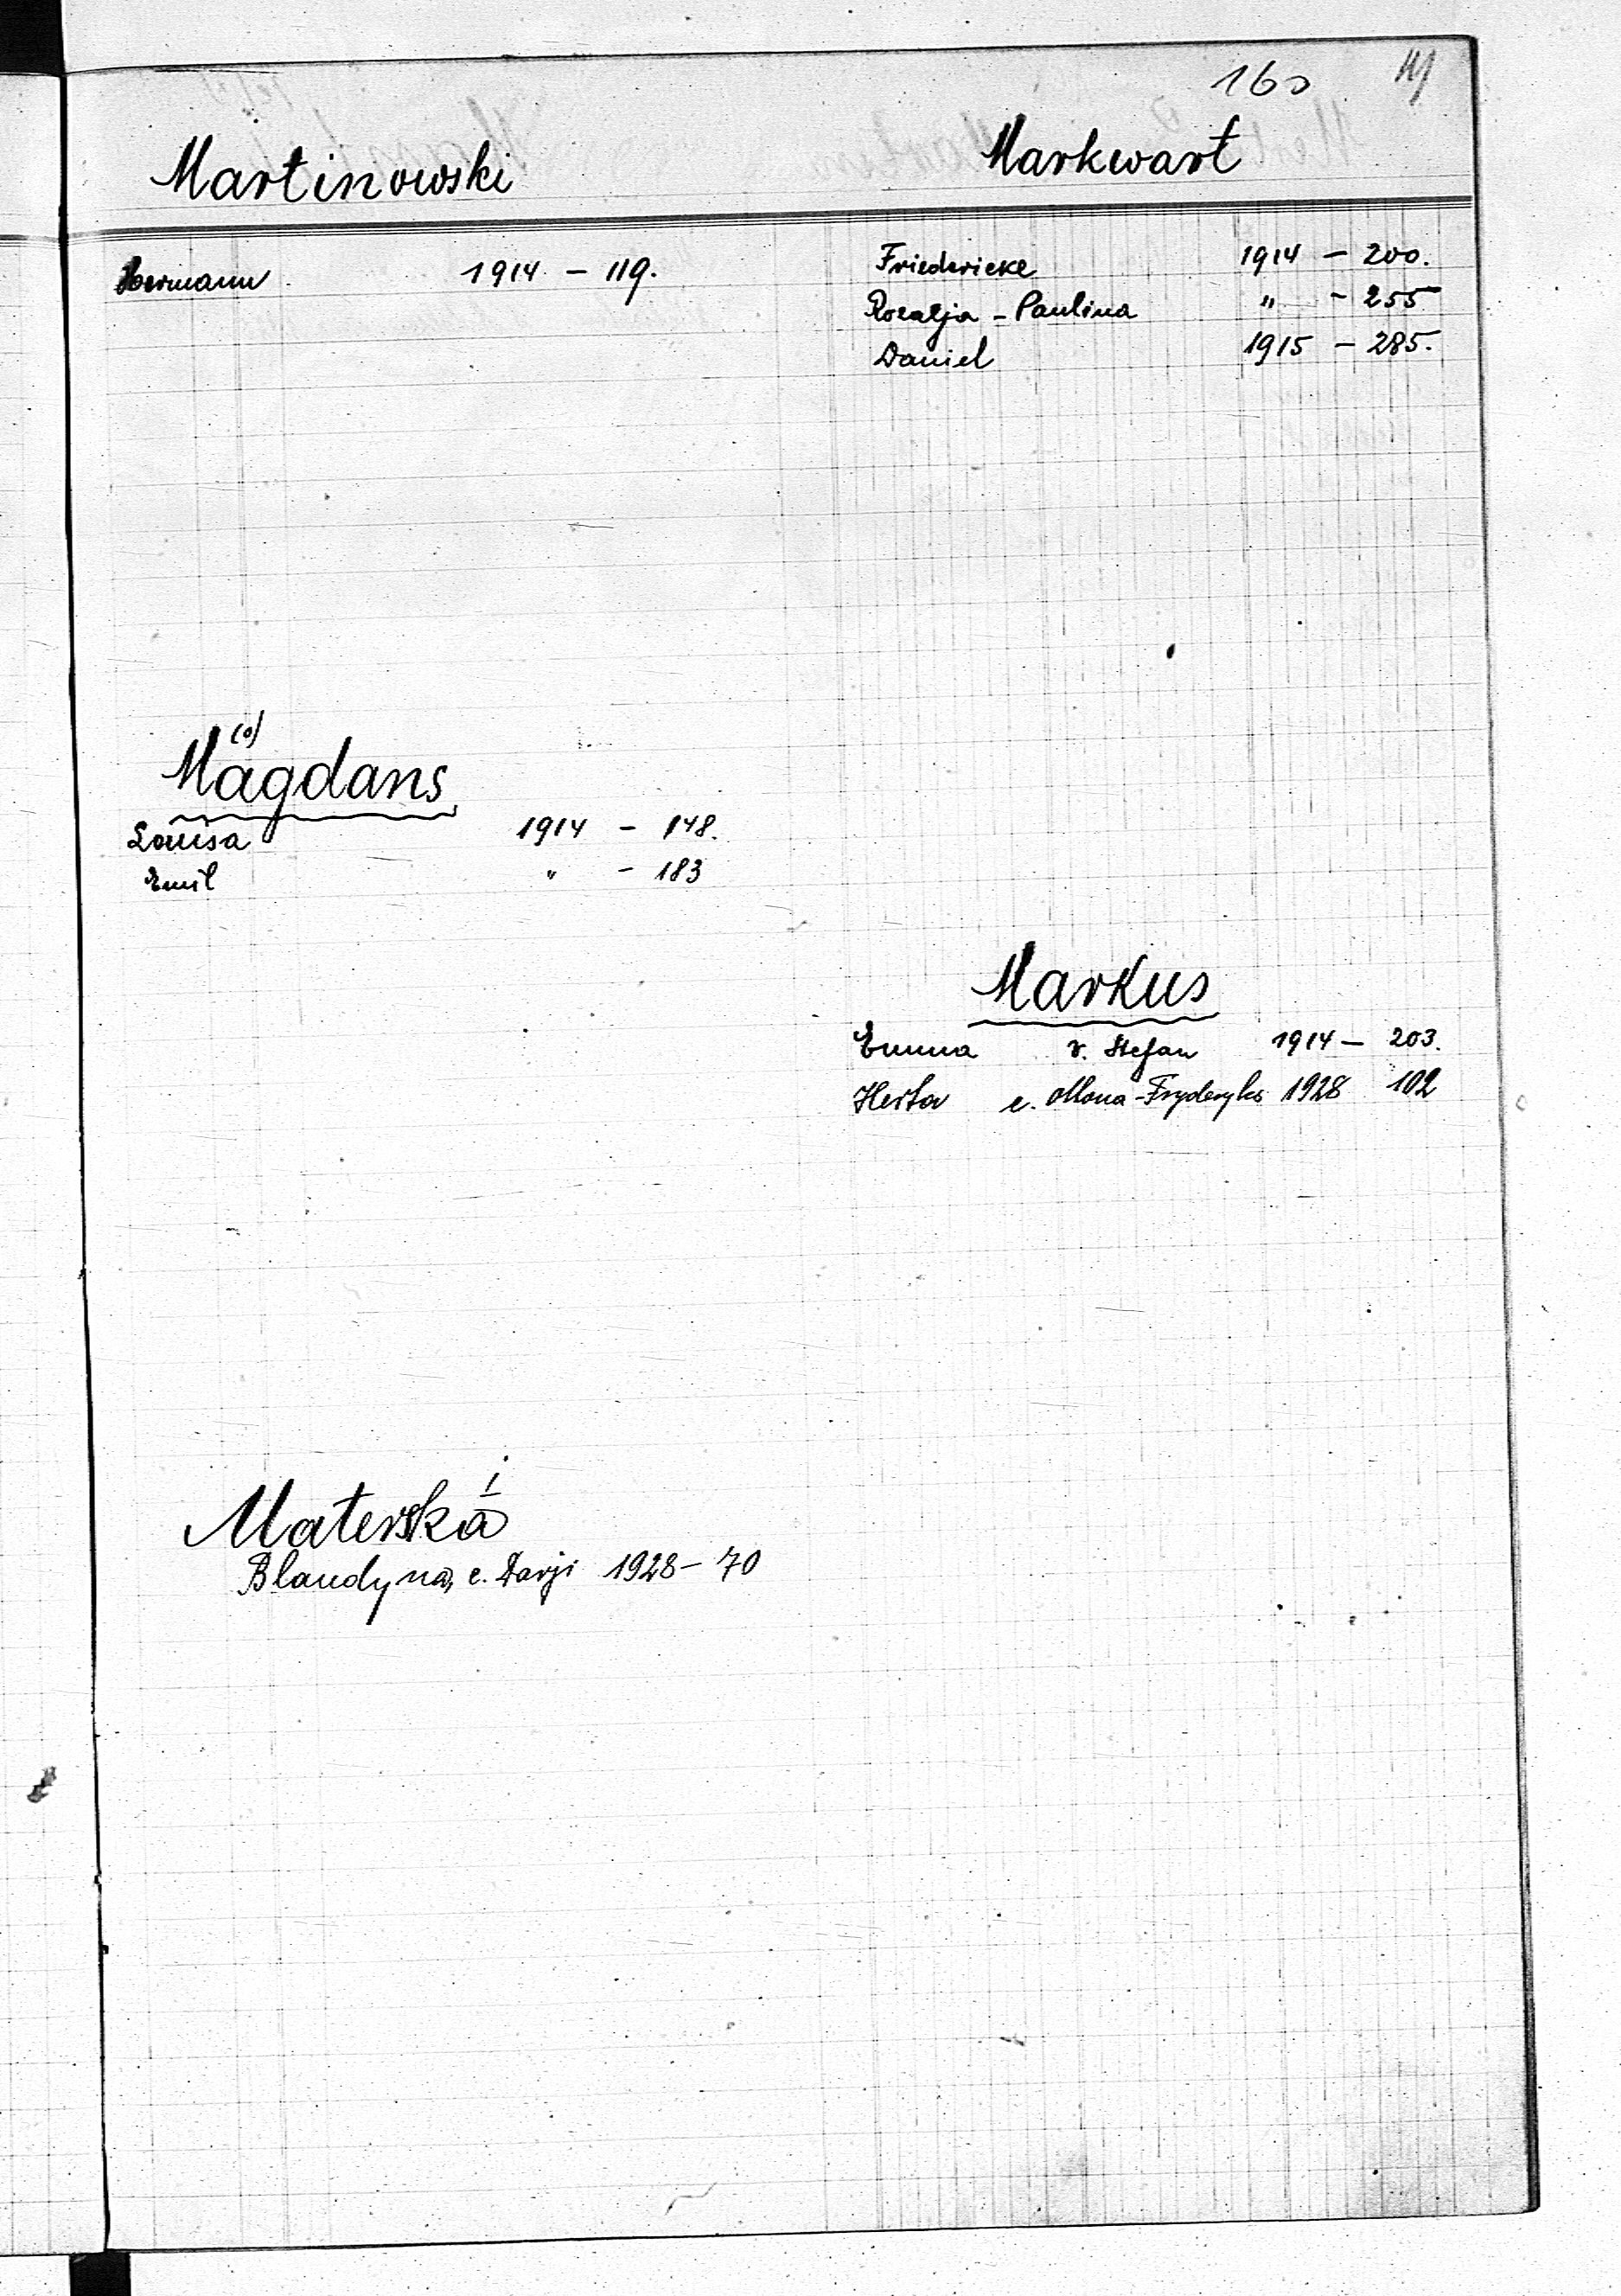 160
Martinowski
Hermann 1914 - 119.
(o)
Mägdans
Louisa 1914 - 148.
Emil " - 183
Materska
i
Blandyna, c. Darji 1928 - 70
Markwart
Friedericke 1914 - 200.
Rozalja - Paulina " - 255
Daniel 1915 - 285.
Markus
Emma v. Stefan 1914 - 203.
Herta c. 1928 102